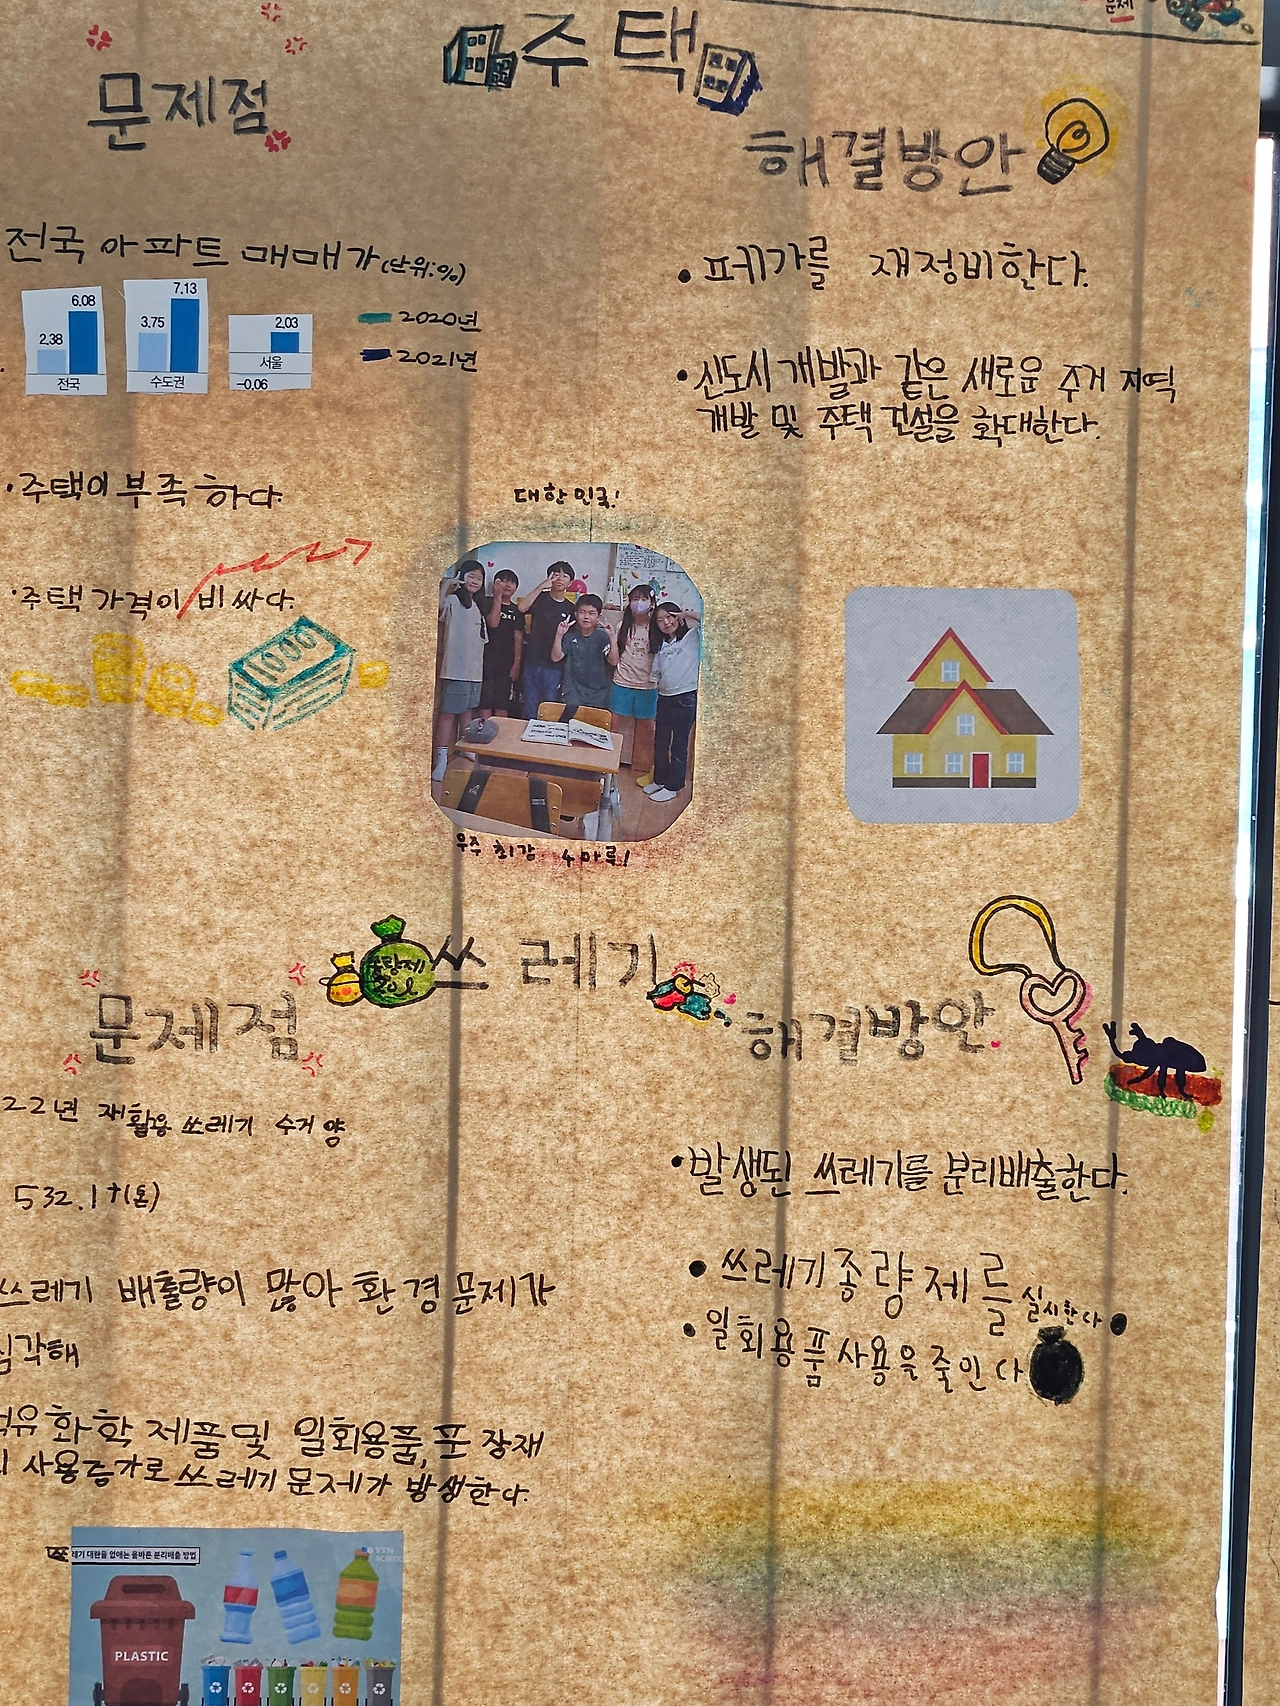 문제
주택
문제점
해결방안
전국 아파트 매매가(단위:%)
2.38 6.08
전국
3.75 7.13
수도권
2.03
서울
-0.06
2020년
2021년
·주택이 부족하다
·주택 가격이 비싸다.
1000
• 폐가를 재정비한다.
• 신도시 개발과 같은 새로운 주거 지역
개발 및 주택 건설을 확대한다.
대한민국!
우주 최강 4마루!
쓰레기
20L
문제점
해결방안
22년 재활용 쓰레기 수거 양
532.1t(톤)
쓰레기 배출량이 많아 환경문제가
심각해
석유화학 제품 및 일회용품, 포장재
사용증가로 쓰레기 문제가 발생한다.
쓰레기 대란을 없애는 올바른 분리배출 방법
YTN
PLASTIC
• 발생된 쓰레기를 분리배출한다.
• 쓰레기종량제를 실시한다
• 일회용품사용을줄인다